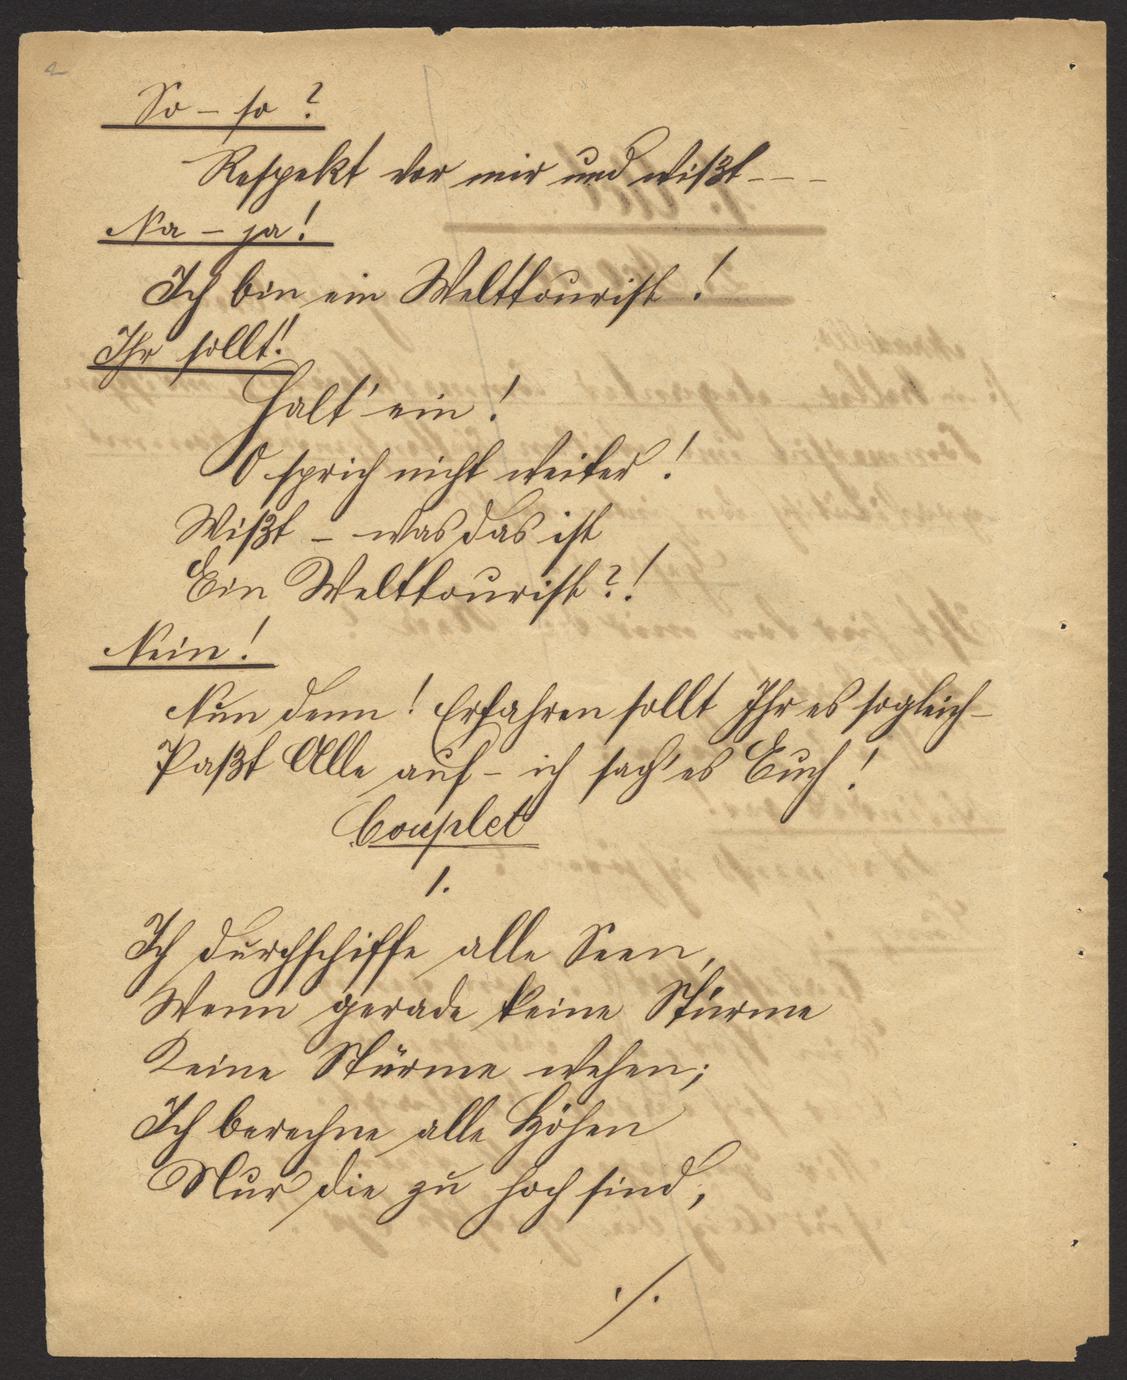 2
So – so ?
Respekt vor mir und wißt - - -
Na – ja !
Ich bin ein Welttourist !
Ihr sollt!
Halt' ein !
O sprich nicht weiter !
Wißt – was das ist
Ein Welttourist ? !
Nein !
Nun denn ! Erfahren sollt Ihr es sogleich –
Paßt Alle auf – ich sag' es Euch !
Couplet
1.
Ich durchschiffe alle Seen,
Wenn gerade keine Stürme
Keine Stürme wehen;
Ich berechne alle Höhen
Nur die zu hoch sind,
./.